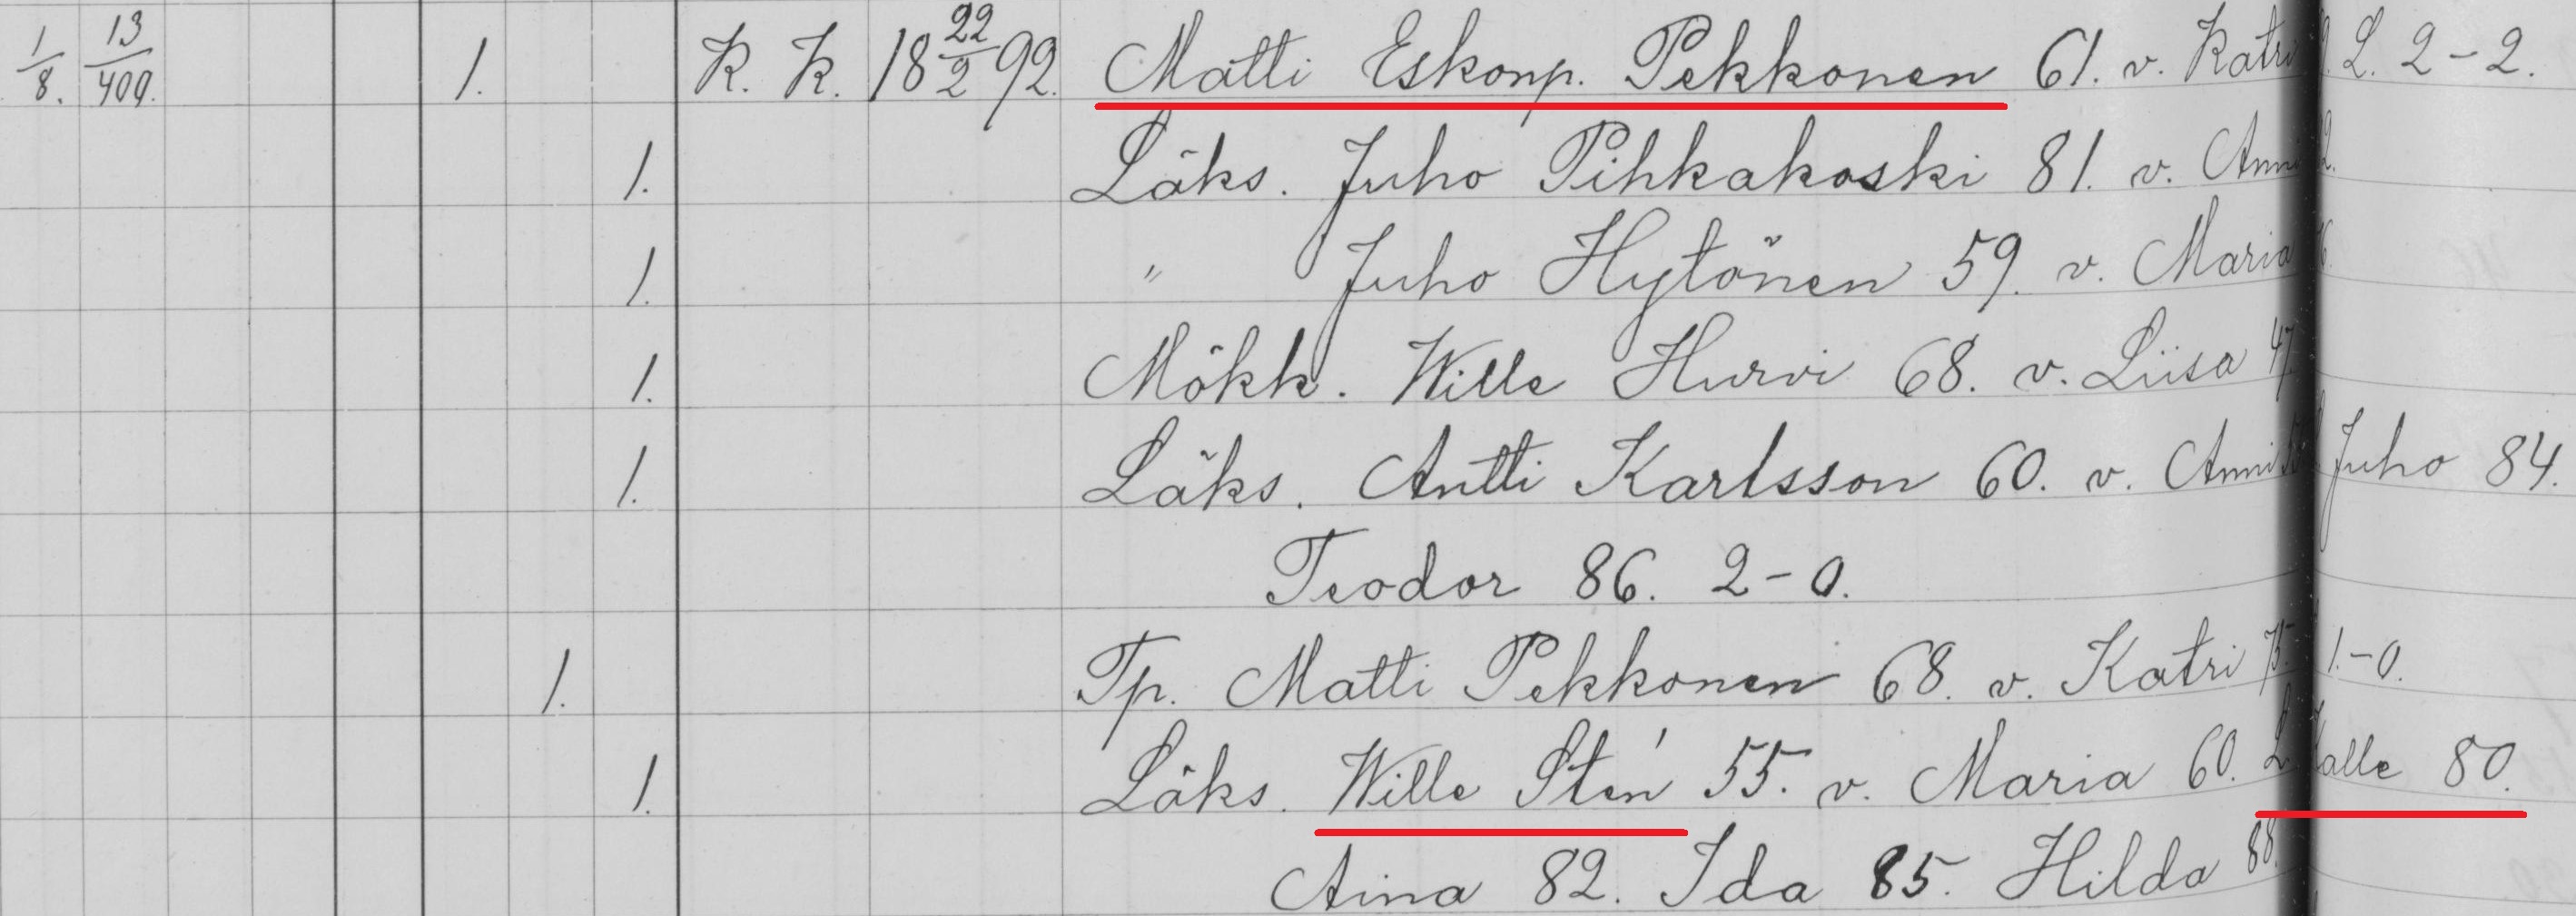 1/8. 13/400. 1. K. K. 18 22/2 92. Matti Eskonp. Pekkonen 61. v. Katri L. 2-2.
1. Läks. Juho Pihkakoski 81. v. Anni
1. " Juho Hytönen 59. v. Maria
1. Mökk. Wille Hurvi 68. v. Liisa 47
1. Läks. Antti Karlsson 60. v. Anni Juho 84.
Teodor 86. 2-0.
1. Tp. Matti Pekkonen 68. v. Katri 75. 1-0.
1. Läks. Wille Stén 55. v. Maria 60. L. Kalle 80.
Aina 82. Ida 85. Hilda 88.